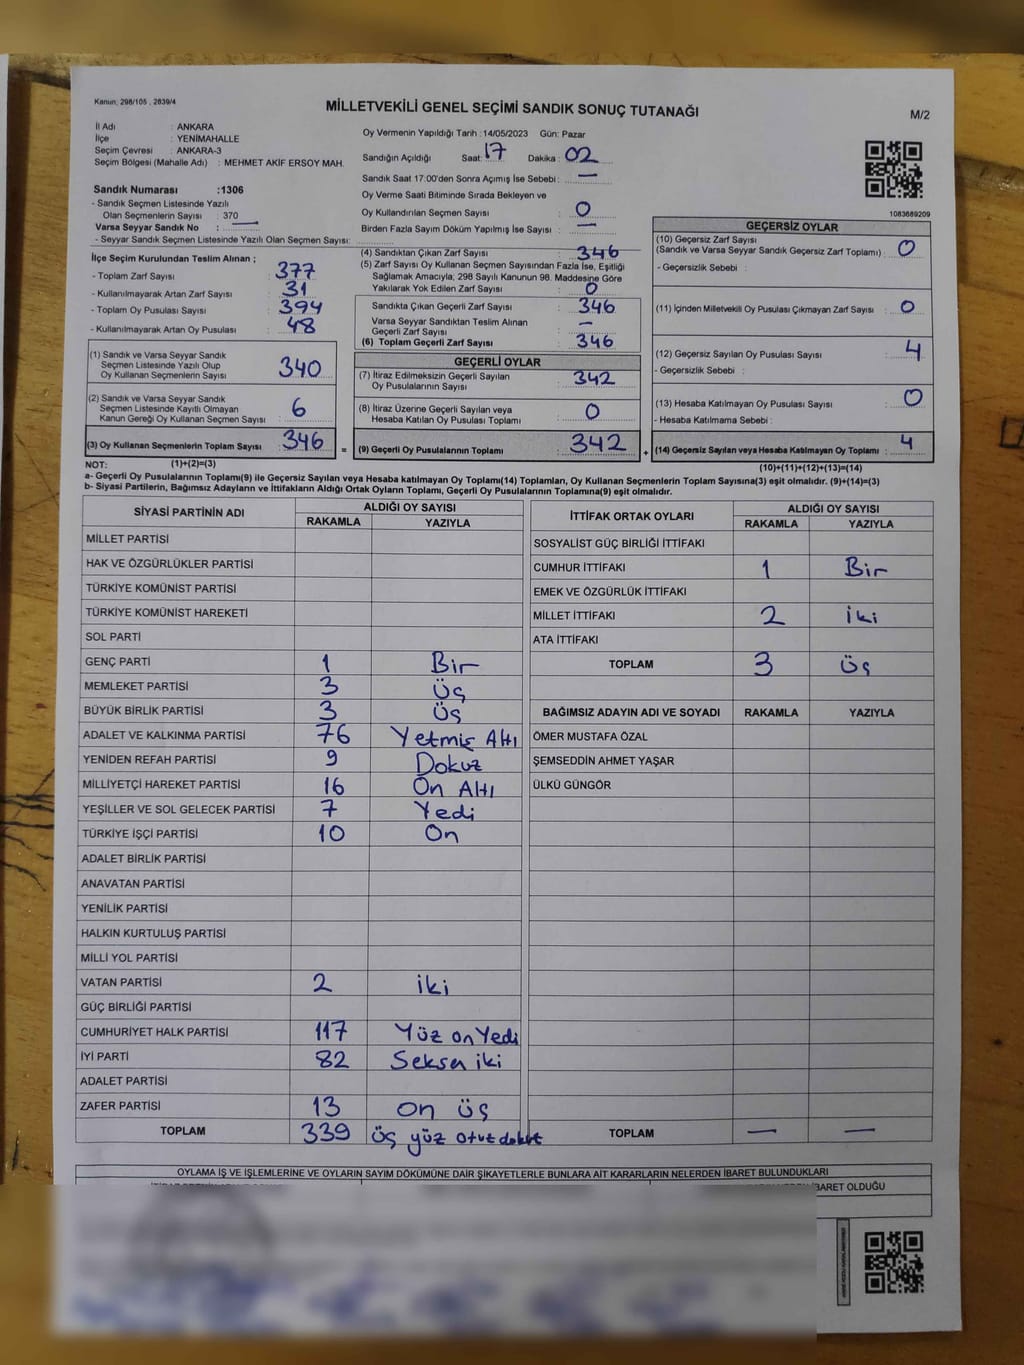 Kanun; 298/105 , 2839/4
MİLLETVEKİLİ GENEL SEÇİMİ SANDIK SONUÇ TUTANAĞI
M/2
İl Adı : ANKARA
İlçe : YENİMAHALLE
Seçim Çevresi : ANKARA-3
Seçim Bölgesi (Mahalle Adı) : MEHMET AKİF ERSOY MAH.
Oy Vermenin Yapıldığı Tarih :14/05/2023 Gün: Pazar
Sandığın Açıldığı Saat: 17 Dakika : 02
Sandık Saat 17:00'den Sonra Açımış İse Sebebi : —
Oy Verme Saati Bitiminde Sırada Bekleyen ve
Oy Kullandırılan Seçmen Sayısı : 0
Birden Fazla Sayım Döküm Yapılmış İse Sayısı : —
Sandık Numarası :1306
- Sandık Seçmen Listesinde Yazılı
Olan Seçmenlerin Sayısı : 370
Varsa Seyyar Sandık No : —
- Seyyar Sandık Seçmen Listesinde Yazılı Olan Seçmen Sayısı:
İlçe Seçim Kurulundan Teslim Alınan ;
- Toplam Zarf Sayısı : 377
- Kullanılmayarak Artan Zarf Sayısı : 31
- Toplam Oy Pusulası : 394
- Kullanılmayarak Artan Oy Pusulası : 48
(1) Sandık ve Varsa Seyyar Sandık
Seçmen Listesinde Yazılı Olup
Oy Kullanan Seçmenlerin Sayısı : 340
(2) Sandık ve Varsa Seyyar Sandık
Seçmen Listesinde Kayıtlı Olmayan
Kanun Gereği Oy Kullanan Seçmen Sayısı : 6
(3) Oy Kullanan Seçmenlerin Toplam Sayısı : 346
(4) Sandıktan Çıkan Zarf Sayısı : 346
(5) Zarf Sayısı Oy Kullanan Seçmen Sayısından Fazla İse, Eşitliği
Sağlamak Amacıyla, 298 Sayılı Kanunun 98. Maddesine Göre
Yakılarak Yok Edilen Zarf Sayısı : 0
Sandıkta Çıkan Geçerli Zarf Sayısı : 346
Varsa Seyyar Sandıktan Teslim Alınan
Geçerli Zarf Sayısı : —
(6) Toplam Geçerli Zarf Sayısı : 346
GEÇERLİ OYLAR
(7) İtiraz Edilmeksizin Geçerli Sayılan
Oy Pusulalarının Sayısı : 342
(8) İtiraz Üzerine Geçerli Sayılan veya
Hesaba Katılan Oy Pusulası Toplamı : 0
= (9) Geçerli Oy Pusulalarının Toplamı : 342
1083689209
GEÇERSİZ OYLAR
(10) Geçersiz Zarf Sayısı
(Sandık ve Varsa Seyyar Sandık Geçersiz Zarf Toplamı) : 0
- Geçersizlik Sebebi :
(11) İçinden Milletvekili Oy Pusulası Çıkmayan Zarf Sayısı : 0
(12) Geçersiz Sayılan Oy Pusulası Sayısı : 4
- Geçersizlik Sebebi :
(13) Hesaba Katılmayan Oy Pusulası Sayısı : 0
- Hesaba Katılmama Sebebi :
+ (14) Geçersiz Sayılan veya Hesaba Katılmayan Oy Toplamı : 4
NOT: (1)+(2)=(3)
(10)+(11)+(12)+(13)=(14)
a- Geçerli Oy Pusulaların Toplamı(9) ile Geçersiz Sayılan veya Hesaba katılmayan Oy Toplamı(14) Toplamları, Oy Kullanan Seçmenlerin Toplam Sayısına(3) eşit olmalıdır. (9)+(14)=(3)
b- Siyasi Partilerin, Bağımsız Adayların ve İttifakların Aldığı Ortak Oyların Toplamı, Geçerli Oy Pusulalarının Toplamına(9) eşit olmalıdır.
SİYASİ PARTİNİN ADI ALDIĞI OY SAYISI
RAKAMLA YAZIYLA
MİLLET PARTİSİ
HAK VE ÖZGÜRLÜKLER PARTİSİ
TÜRKİYE KOMÜNİST PARTİSİ
TÜRKİYE KOMÜNİST HAREKETİ
SOL PARTİ
GENÇ PARTİ 1 Bir
MEMLEKET PARTİSİ 3 üç
BÜYÜK BİRLİK PARTİSİ 3 üç
ADALET VE KALKINMA PARTİSİ 76 Yetmiş Altı
YENİDEN REFAH PARTİSİ 9 Dokuz
MİLLİYETÇİ HAREKET PARTİSİ 16 On Altı
YEŞİLLER VE SOL GELECEK PARTİSİ 7 Yedi
TÜRKİYE İŞÇİ PARTİSİ 10 On
ADALET BİRLİK PARTİSİ
ANAVATAN PARTİSİ
YENİLİK PARTİSİ
HALKIN KURTULUŞ PARTİSİ
MİLLİ YOL PARTİSİ
VATAN PARTİSİ 2 iki
GÜÇ BİRLİĞİ PARTİSİ
CUMHURİYET HALK PARTİSİ 117 Yüz on Yedi
İYİ PARTİ 82 Seksen iki
ADALET PARTİSİ
ZAFER PARTİSİ 13 on üç
TOPLAM 339 üç yüz otuz dokuz
İTTİFAK ORTAK OYLARI ALDIĞI OY SAYISI
RAKAMLA YAZIYLA
SOSYALİST GÜÇ BİRLİĞİ İTTİFAKI
CUMHUR İTTİFAKI 1 Bir
EMEK VE ÖZGÜRLÜK İTTİFAKI
MİLLET İTTİFAKI 2 iki
ATA İTTİFAKI
TOPLAM 3 üç
BAĞIMSIZ ADAYIN ADI VE SOYADI RAKAMLA YAZIYLA
ÖMER MUSTAFA ÖZAL
ŞEMSEDDİN AHMET YAŞAR
ÜLKÜ GÜNGÖR
TOPLAM — —
OYLAMA İŞ VE İŞLEMLERİNE VE OYLARIN SAYIM DÖKÜMÜNE DAİR ŞİKAYETLERLE BUNLARA AİT KARARLARIN NELERDEN İBARET BULUNDUKLARI
İBARET OLDUĞU